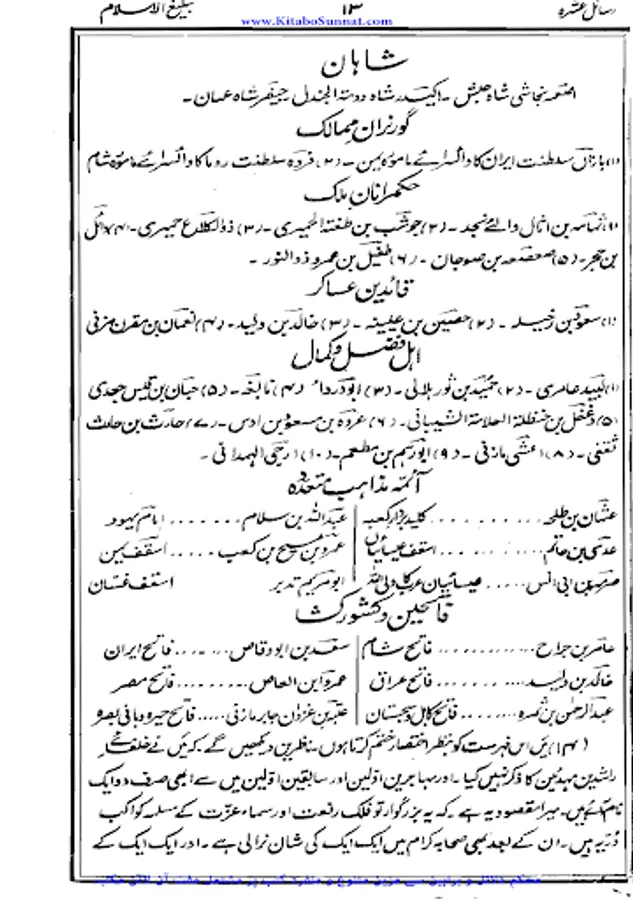 رسائل عشرہ ۱۳ تبلیغ الاسلام
www.KitaboSunnat.com
شاہان
اصحمہ نجاشی شاہ حبش۔ اکیدر شاہ دومۃ الجندل۔ جیفر شاہ عمان۔
گورنران ممالک
(۱) باذان سلطنت ایران کا وائسرائے مامورہ یمن۔ (۲) فروہ سلطنت روما کا وائسرائے مامورہ شام
حکمرانان ملک
(۱) ثمامہ بن اثال والئے نجد۔ (۲) حوشب بن طخمۃ الحمیری۔ (۳) ذوالکلاع حمیری۔ (۴) وائل
بن حجر۔ (۵) صعصعہ بن صوحان۔ (۶) طفیل بن عمرو ذوالنور۔
قائدین عساکر
(۱) مسعود بن رخیلہ۔ (۲) حصین بن عیینہ۔ (۳) خالد بن ولید۔ (۴) نعمان بن مقرن مزنی
اہل فضل و کمال
(۱) لبید عامری۔ (۲) حمید بن ثور ہلالی۔ (۳) ابو درداء۔ (۴) نابغہ۔ (۵) حبان بن قیس جعدی
(۵) دغفل بن حنظلۃ العلامۃ الشیبانی۔ (۶) عروہ بن مسعود بن اوس۔ (۷) حارث بن حارث
ثقفی۔ (۸) اعشی مازنی۔ (۹) ابورہم بن مطعم۔ (۱۰) ارحبی الہمدانی۔
آئمہ مذاہب متعددہ
عثمان بن طلحہ .......... کلید بردار کعبہ عبداللہ بن سلام ....... امام یہود
عدی بن حاتم .......... اسقف عیسائیاں عمرو بن مسیح بن کعب ..... اسقف یمن
صرمہ بن ابی انس ..... عیسائیان عرب کا ولی اللہ ابو مریم اسقف غسان
فاتحین و کشور کشا
عامر بن جراح .......... فاتح شام سعد بن ابو وقاص ....... فاتح ایران
خالد بن ولید .......... فاتح عراق عمرو ابن العاص ......... فاتح مصر
عبدالرحمٰن بن ثمرہ ........ فاتح کابل و سجستان عتبہ بن غزوان جابر مازنی ..... فاتح حیرہ و بانی بصرہ
(۱۴) میں اس فہرست کو بنظر اختصار ختم کرتا ہوں۔ ناظرین دیکھیں گے۔ کہ میں نے خلفائے
راشدین مہدیین کا ذکر نہیں کیا۔ اور مہاجرین اولین اور سابقین اولین میں سے ابھی صرف دو ایک
نام لئے ہیں۔ میرا مقصود یہ ہے۔ کہ یہ بزرگوار تو فلک رفعت اور سماء عزت کے مسلمہ کواکب
دریہ ہیں۔ ان کے بعد بھی صحابہ کرام میں ایک ایک کی شان نرالی ہے۔ اور ایک ایک کے
محکم دلائل و براہین سے مزین متنوع و منفرد کتب پر مشتمل مفت آن لائن مکتبہ